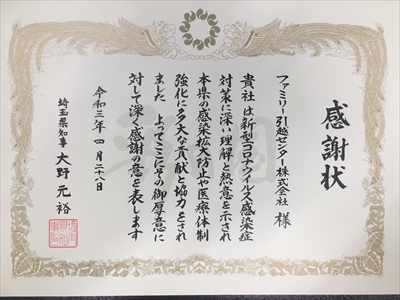 感謝状
ファミリー引越センター株式会社 様
貴社は新型コロナウイルス感染症
対策に深い理解と熱意を示され
本県の感染拡大防止や医療体制
強化に多大な貢献と協力をされ
ました よってここにその御厚意に
対して深く感謝の意を表します
令和三年四月二十八日
埼玉県知事 大野元裕